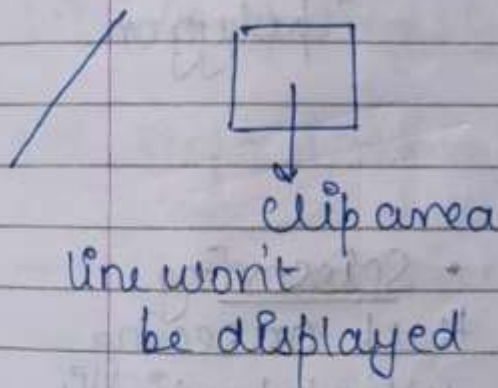 Clip area
line won't
be displayed